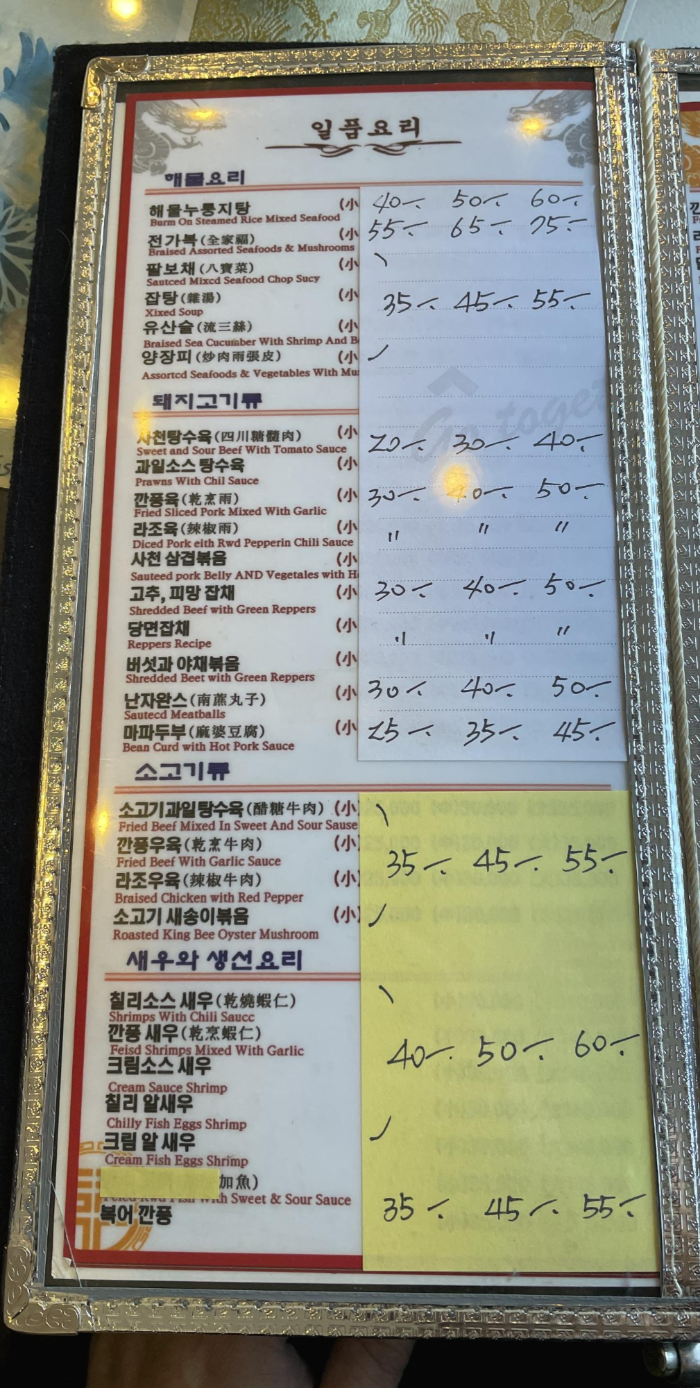 일품요리
해물요리
해물누룽지탕 (小 40-. 50-. 60-.
Burn On Steamed Rice Mixed Seafood
전가복(全家福) (小 55-. 65-. 75-.
Braised Assorted Seafoods & Mushrooms
팔보채(八寶菜) (小
Sautced Mixcd Seafood Chop Sucy
잡탕(雜湯) (小 35-. 45-. 55-.
Xixed Soup
유산슬(流三絲) (小
Braised Sea Cucumber With Shrimp And B
양장피(炒肉兩張皮) (小
Assortcd Seafoods & Vegetables With Mu
돼지고기류
Go toget
사천탕수육(四川糖髓肉) (小 20-. 30-. 40-.
Sweet and Sour Beef With Tomato Sauce
과일소스 탕수육 (小
Prawns With Chil Sauce
깐풍육(乾烹雨) (小 30-. 40-. 50-.
Fried Sliced Pork Mixed With Garlic
라조육(辣椒雨) (小 " " "
Diced Pork eith Rwd Pepperin Chili Sauce
사천 삼겹볶음 (小
Sauteed pork Belly AND Vegetales with H
고추, 피망 잡채 (小 30-. 40-. 50-.
Shredded Beef with Green Reppers
당면잡채 (小 " " "
Reppers Recipe
버섯과 야채볶음 (小
Shredded Beet with Green Reppers
난자완스(南蔗丸子) (小 30-. 40-. 50-.
Sautecd Meatballs
마파두부(麻婆豆腐) (小 25-. 35-. 45-.
Bean Curd with Hot Pork Sauce
소고기류
소고기과일탕수육(醋糖牛肉) (小)
Fried Beef Mixed In Sweet And Sour Sause
깐풍우육(乾烹牛肉) (小) 35-. 45-. 55-.
Fried Beef With Garlic Sauce
라조우육(辣椒牛肉) (小)
Braised Chicken with Red Pepper
소고기 새송이볶음 (小)
Roasted King Bee Oyster Mushroom
새우와 생선요리
칠리소스 새우(乾燒蝦仁)
Shrimps With Chili Saucc
깐풍 새우(乾烹蝦仁)
Feisd Shrimps Mixed With Garlic
40-. 50-. 60-.
크림소스 새우
Cream Sauce Shrimp
칠리 알새우
Chilly Fish Eggs Shrimp
크림 알 새우
Cream Fish Eggs Shrimp
加魚)
Fish With Sweet & Sour Sauce
복어 깐풍 35-. 45-. 55-.